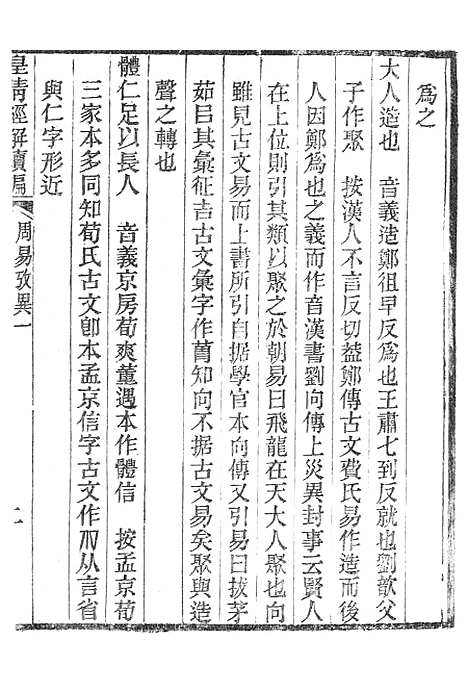 爲之
大人造也　音義造鄭徂早反爲也王肅七到反就也劉歆父
子作聚　按漢人不言反切葢鄭傳古文費氏易作造而後
人因鄭爲也之義而作音漢書劉向傳上災異封事云賢人
在上位則引其類以聚之於朝易曰飛龍在天大人聚也向
雖見古文易而上書所引自据學官本向傳又引易曰拔茅
茹㠯其彙征吉古文彙字作𦳢知向不据古文易矣聚與造
聲之轉也
體仁足以長人　音義京房荀爽董遇本作體信　按孟京荀
三家本多同知荀氏古文卽本孟京信字古文作㐰从言省
與仁字形近
皇清經解續編
周易攷異一
二